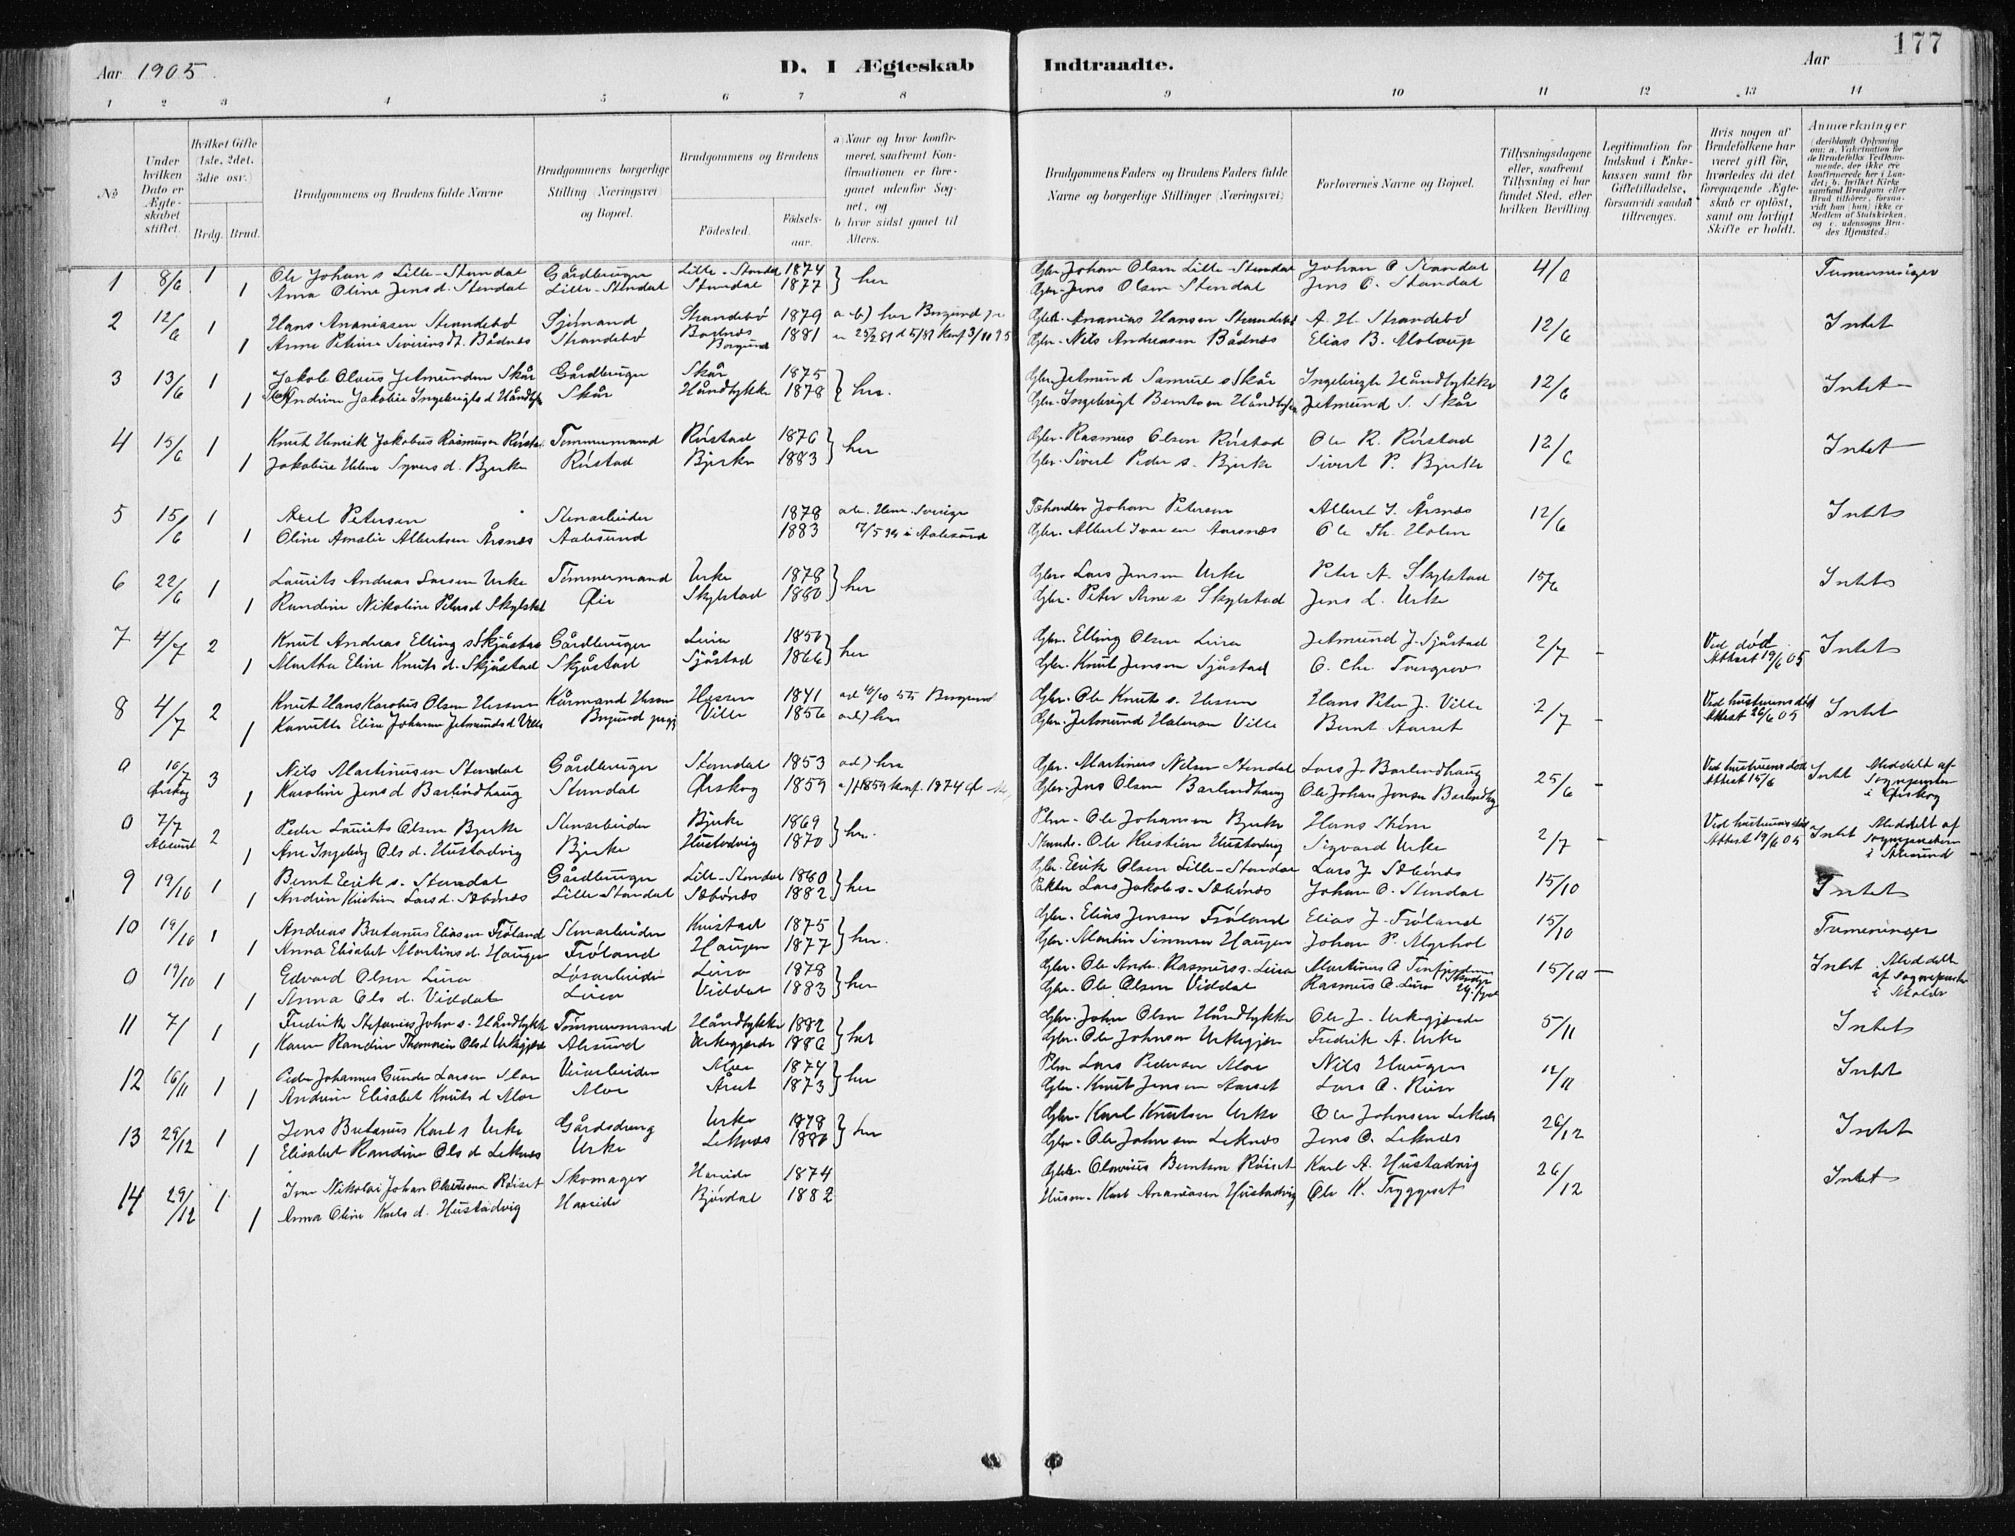 177
Aar 1905.
D. I Ægteskab Indtraadte.
Aar
1 2 3 4 5 6 7 8 9 10 11 12 13 14
№
Under hvilken Dato er Ægteskabet stiftet.
Hvilket Gifte (1ste, 2det, 3die osv.)
Brdg. Brud.
Brudgommens og Brudens fulde Navne
Brudgommens borgerlige Stilling (Næringsvei) og Bopæl.
Brudgommens og Brudens
Fødested.
Fødselsaar.
a) Naar og hvor konfirmeret, saafremt Konfirmationen er foregaaet udenfor Sognet, og
b) hvor sidst gaaet til Alters.
Brudgommens Faders og Brudens Faders fulde Navne og borgerlige Stillinger (Næringsvei)
Forlovernes Navne og Bopæl.
Tillysningsdagene eller, saafremt Tillysning ei har fundet Sted, efter hvilken Bevilling.
Legitimation for Indskud i Enkekassen samt for Giftetilladelse, forsaavidt saadan tiltrænges.
Hvis nogen af Brudefolkene har været gift før, hvorledes da det foregaaende Ægteskab er opløst, samt om lovligt Skifte er holdt.
Anmærkninger
1 8/6 1 Ole Johan s Lille-Standal Gårdbruger Lille-Standal 1874 } her Gbr. Johan Olsen Lille-Standal Johan O Standal 4/6
1 Anna Oline Jens d. Standal Lille-Standal Standal 1877 Gbr. Jens Olsen Standal Jens O. Standal
2 12/6 1 Hans Ananiasen Strandebø Sjømand Strandebø 1879 Ananias Hansen Strandebø A. H. Strandebø 12/6 Intet
1 Anne Petrine Siverine Bådnes Strandebø Borgund 1881 Gbr. Nils Andreasen Bådnes Elias B.
3 13/6 1 Jakob Olaus Jetmundsen Skår Gårdbruger Skår 1875 } her. Gbr. Jetmund Samuel s Skår Ingebrigt Håndlykke 12/6 Intet
1 Andrine Jakobine Ingebrigts d Håndlykke Skår Håndlykke 1878 Gbr. Ingebrigt Berntsen Håndlykke Jetmund S. Skår
4 15/6 1 Knut Henrik Jakobus Rasmusen Rørstad Tømmermand Rørstad 1876 } her Gbr. Rasmus Olsen Rørstad Ole R. Rørstad 12/6 Intet
1 Jakobine Helene Syvers d. Bjerke Rørstad Bjerke 1883 Gbr. Sivert Peder s. Bjerke Sivert P. Bjerke
5 15/6 1 Axel Petersen Stenarbeider 1878 Johan Petersen Albert I. Årsnes 12/6 Intet
1 Oline Amalie Albertsen Årsnes Aalesund 1883 i Aalesund Gbr. Albert Ivarsen Aarsnes Ole Th. Holen
6 22/6 1 Laurits Andreas Larsen Urke Tømmermand Urke 1878 } her Gbr. Lars Jensen Urke Peter A. Skylstad 15/6 Intet
1 Randine Nikoline Peters d Skylstad Øie Skylstad 1880 Gbr. Peter Arne s Skylstad Jens L. Urke
7 4/7 2 Knut Andreas Elling s Skjåstad Gårdbruger Leira 1850 } her Gbr. Elling Olsen Leira Jetmund J. Sjåstad 2/7 - Ved død Attest 19/6 05 Intet
1 Martha Eline Knuts d. Skjåstad Skjåstad Sjåstad 1866 Gbr. Knut Jensen Sjåstad O. Chr.
8 4/7 2 Knut Hans Karolus Olsen Hessen Kårmand Hessen Hessen 1841 Borgund Gbr. Ole Knut s. Hessen Hans Peter J. Ville 2/7 - Ved hustruens død Attest 26/6 05 Intet
1 Eline Johanne Jetmunds d Ville Borgund Ville 1856 ad) her Gbr. Jetmund Ville Bernt Aarset
0 10/7 Ørskog 3 Nils Martinusen Standal Gårdbruger Standal 1853 ad) her Gbr. Martinus Nilsen Standal Lars J. Barlindhaug 25/6 - Ved hustruens død Attest 15/6 Intet Meddelt af Sognepresten i Ørskog
1 Karoline Jens d Barlindhaug Standal Ørskog 1859 Gbr. Jens Olsen Barlindhaug Ole Johan Jensen Barlindhaug
0 7/7 Alesund 2 Peder Laurits Olsen Bjerke Stenarbeider Bjerke 1869 } her. Plm. Ole Johansen Bjerke Hans 2/7 - Ved hustruens død Attest 19/6 05 Intet Meddelt af Sognepresten i Ålesund
1 Ane Ingeborg Ols d. Hustadvig Bjerke Hustadvig 1870 Ole Kristian Hustadvig Sigvard Urke
9 19/10 1 Bernt Eerik s. Standal Gårdbruger Lille-Standal 1880 } her Gbr. Eerik Olsen Lille-Standal Lars J Sæbønes 15/10 Intet
1 Andrine Kristine Lars d. Sæbønes Lille Standal Sæbønes 1882 Lars Jakob s. Sæbønes Johan O. Standal
10 19/10 1 Andreas Brutanus Eliasen Frøland Stenarbeider 1875 } her. Gbr. Elias Jensen Frøland Elias J. Frøland 15/10
1 Anna Elisabet Martins d Haugen Frøland Haugen 1877 Gbr. Martin Haugen Johan P. Myrhol
0 19/10 1 Edvard Olsen Leira Løsarbeider Leira 1878 } her Gbr. Ole Andr. Rasmus s. Leira 15/10 - Intet Meddelt af Sognepresten i Molde
1 Anna Ols d. Viddal Leira Viddal 1883 Gbr. Ole Olsen Viddal Rasmus O. Leira
11 7/ 1 Fredrik Stefanus John s. Håndlykke Tømmermand Håndlykke 1882 } her Gbr. John Olsen Håndlykke Ole J. Urkegjerde 5/11 Intet
1 Karen Randine Thomasine Ols d Urkegjerde Alesund Urkegjerde 1886 Gbr. Ole Johnsen Urkegjer Fredrik A. Urke
12 16/11 1 Peder Johannes Gunder Larsen Moe Veiarbeider Moe 1874 } her Plm Lars Pedersen Moe Nils Haugen 12/11 Intet
1 Andrine Elisabet Knuts d Moe Moe Året 1873 Gbr. Knut Jensen Aarset Lars O.
13 29/12 1 Jens Brutanus Karl s Urke Gårdsdreng Urke 1878 } her Gbr. Karl Knutsen Urke Ole Johnsen Leknes 26/12 Intet
1 Elisabet Randine Ols d Leknes Urke Leknes 1880 Gbr. Ole Johnsen Leknes Jens O. Leknes
14 29/12 1 Iver Nikolai Johan Røiset Skomager Hareide 1874 Olavius Berntsen Røiset Karl A. Hustadvig 26/12 Intet
1 Anna Oline Karls d. Hustadvig Hareide Bjørdal 1882 Husm. Karl Ananiasen Hustadvig Ole K. Tryggeset